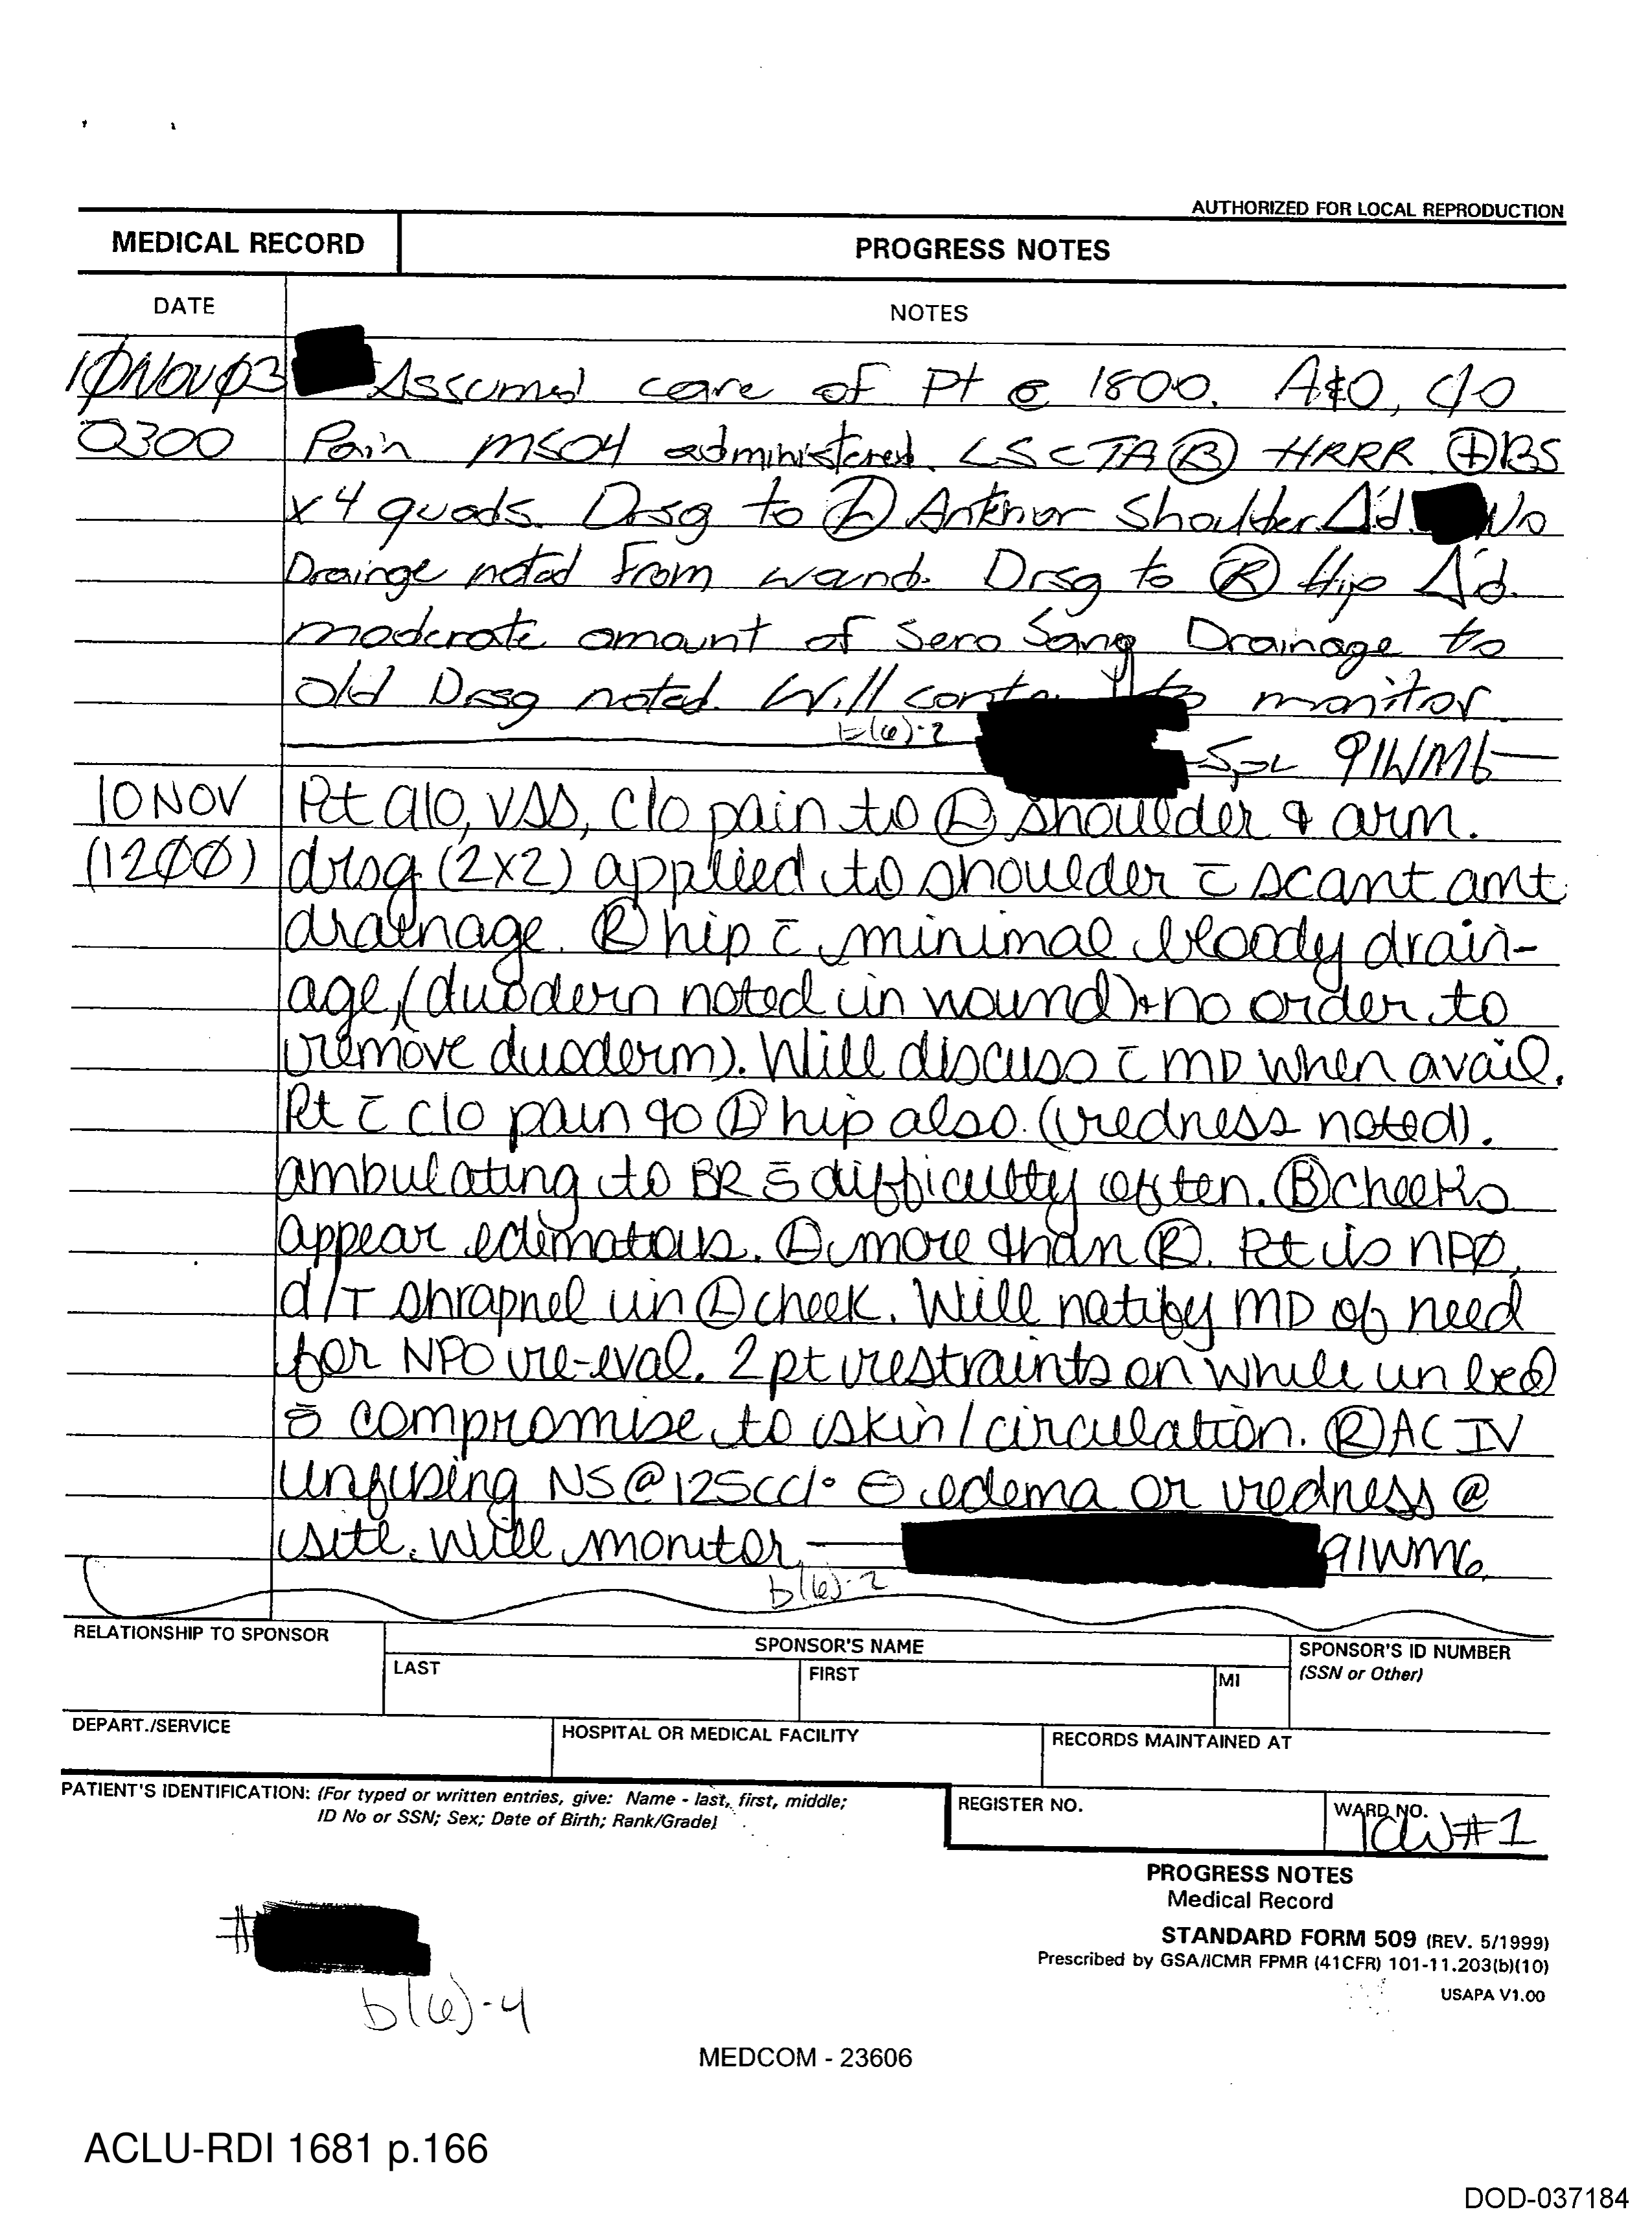 AUTHORIZED FOR LOCAL REPRODUCTION
MEDICAL RECORD PROGRESS NOTES
DATE NOTES
1ØNOVØ3 Assumed care of Pt @ 1800. A&O, c/o
0300 Pain MSO4 administered. LSCTA Ⓑ HRRR ⊕BS
x 4 quads. Drsg to Ⓛ Anterior Shoulder Δ'd. No
Drainge noted From wound. Drsg to Ⓡ Hip Δ'd.
moderate amount of Sero Sang Drainage to
old Drsg noted. Will to monitor.
b(6)-2 Spc 91WM6
10 NOV Pt a/o, VSS, c/o pain to Ⓛ shoulder & arm.
(12ØØ) drsg (2x2) applied to shoulder c̄ scant amt
drainage. Ⓡ hip c̄ minimal bloody drain-
age (duoderm noted in wound) + no order to
remove duoderm). Will discuss c̄ MD when avail.
Pt c̄ c/o pain to Ⓛ hip also. (redness noted).
ambulating to BR s̄ difficulty often. Ⓑ cheeks
appear edematous. Ⓛ more than Ⓡ. Pt is NPØ,
d/T shrapnel in Ⓛ cheek. Will notify MD of need
for NPO re-eval. 2 pt restraints on while in bed
s̄ compromise to skin/circulation. Ⓡ AC IV
infusing NS @ 125cc/° ⊖ edema or redness @
site. Will monitor. 91WM6
b(6)-2
RELATIONSHIP TO SPONSOR SPONSOR'S NAME SPONSOR'S ID NUMBER
LAST FIRST MI (SSN or Other)
DEPART./SERVICE HOSPITAL OR MEDICAL FACILITY RECORDS MAINTAINED AT
PATIENT'S IDENTIFICATION: (For typed or written entries, give: Name - last, first, middle;
ID No or SSN; Sex; Date of Birth; Rank/Grade)
REGISTER NO. WARD NO.
ICW#1
PROGRESS NOTES
Medical Record
STANDARD FORM 509 (REV. 5/1999)
Prescribed by GSA/ICMR FPMR (41CFR) 101-11.203(b)(10)
USAPA V1.00
#
b(6)-4
MEDCOM - 23606
ACLU-RDI 1681 p.166
DOD-037184